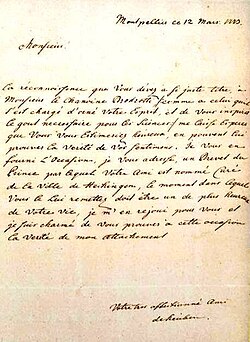 Montpellier ce 12 Mars
Monsieur
La reconnoissance que Vous devez a si juste titre, à
Monsieur le Chanoine comme a celui qui
s'est chargé d' Votre Esprit, et de Vous inspirer
le gout necessaire pour les Sciences, me laisse l'espoir
que Vous Vous Estimeriez heureux, en pouvant lui
prouver la Verité de Vos sentimens. Je Vous en
fourni l'Occasion, je Vous adresse, un Brevet du
Prince par lequel Votre Ami est nommé Curé
de la Ville de le moment dans lequel
Vous le Lui remettez doit être un de plus heureux
de Votre Vie, je m'en rejoui pour Vous et
je suis charmé de Vous prouver a cette occasion
la Verité de mon attachement
Votre tres affectionné Ami